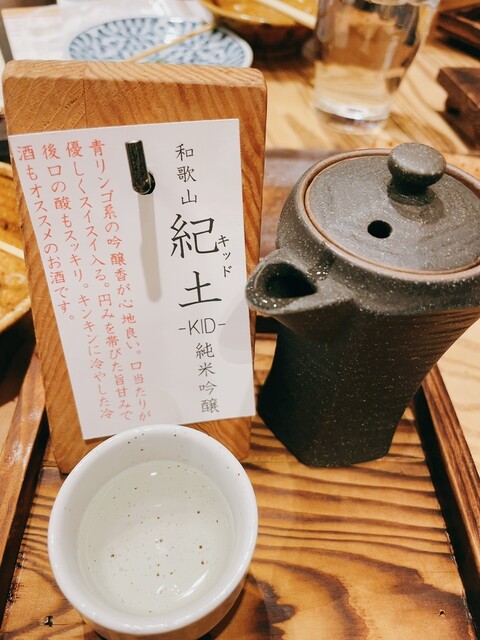 和歌山
紀土
キッド
-KID-
純米吟醸
青リンゴ系の吟醸香が心地良い。口当たりが
優しくスイスイ入る。円みを帯びた旨甘みで
後口の酸もスッキリ。キンキンに冷やした冷
酒もオススメのお酒です。